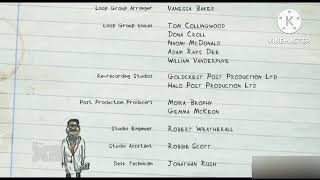 Loop Group Arranger Vanessa Baker
Loop Group Voices Tom Collingwood
Dona Croll
Naomi McDonald
Adam Rhys Dee
William Vanderpuye
Re-recording Studios Goldcrest Post Production Ltd
Halo Post Production Ltd
Post Production Producers Moira Brophy
Gemma McKeon
Studio Engineer Robert Weatherall
Studio Assistant Robbie Scott
Desk Technician Jonathan Rush
KINEMASTER